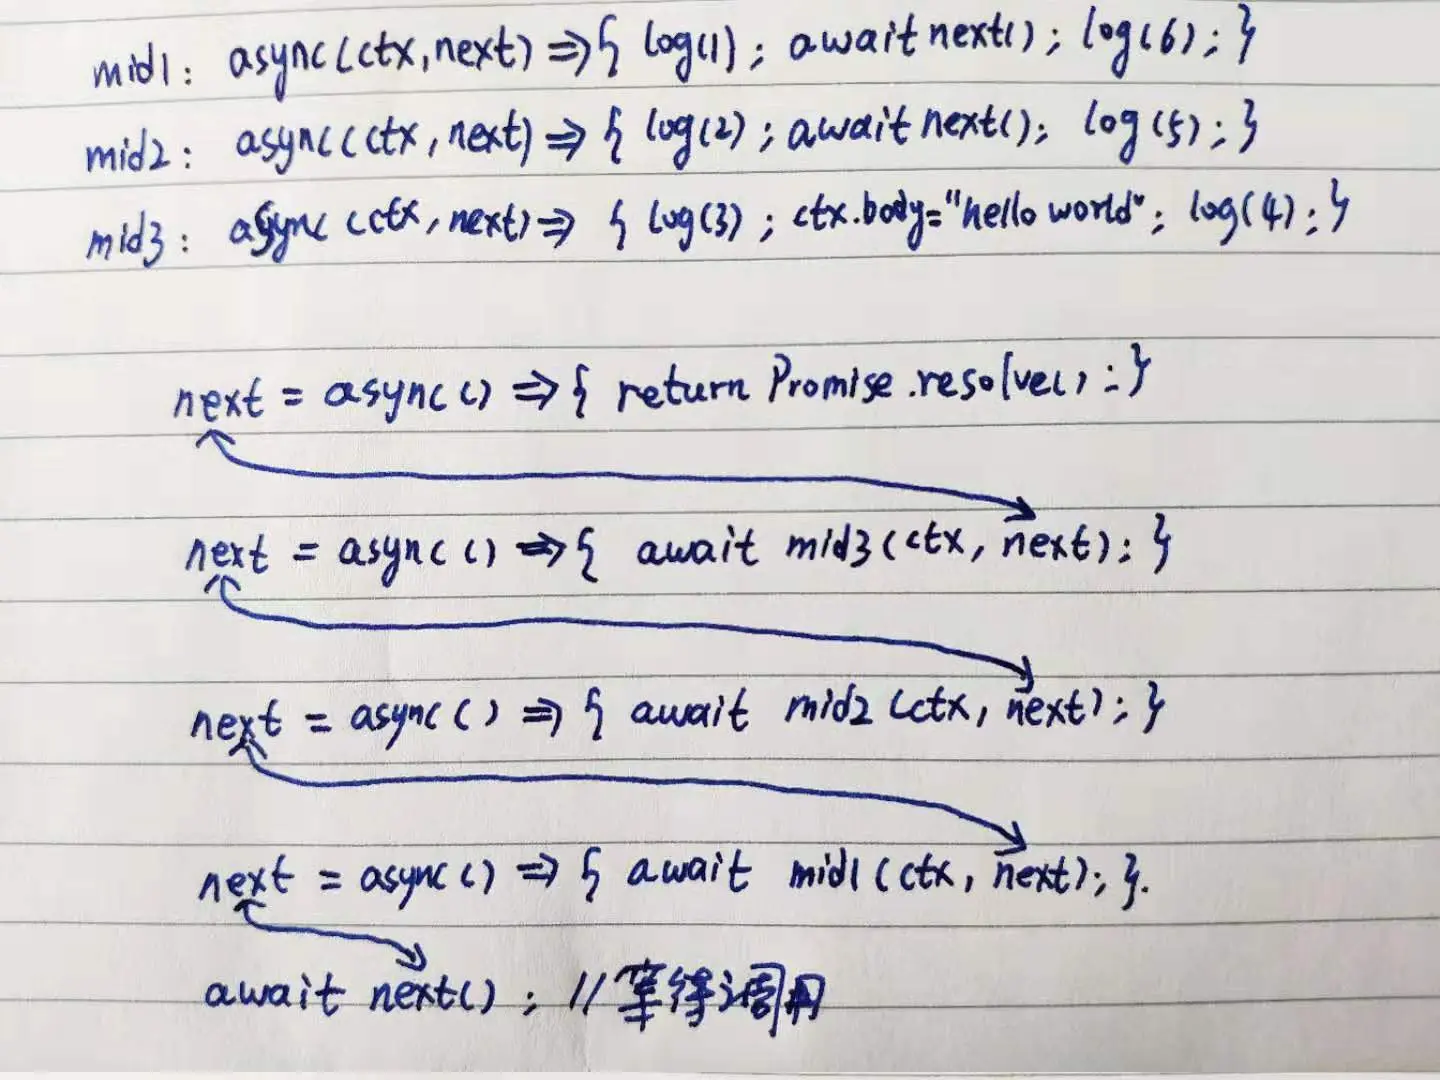 mid1: async(ctx,next)=>{ log(1); await next(); log(6); }
mid2: async(ctx,next)=>{ log(2); await next(); log(5); }
mid3: async(ctx,next)=>{ log(3); ctx.body="hello world"; log(4); }
next = async() =>{ return Promise.resolve(); }
next = async() =>{ await mid3(ctx, next); }
next = async() =>{ await mid2(ctx, next); }
next = async() =>{ await mid1(ctx, next); }.
await next(); //等待调用